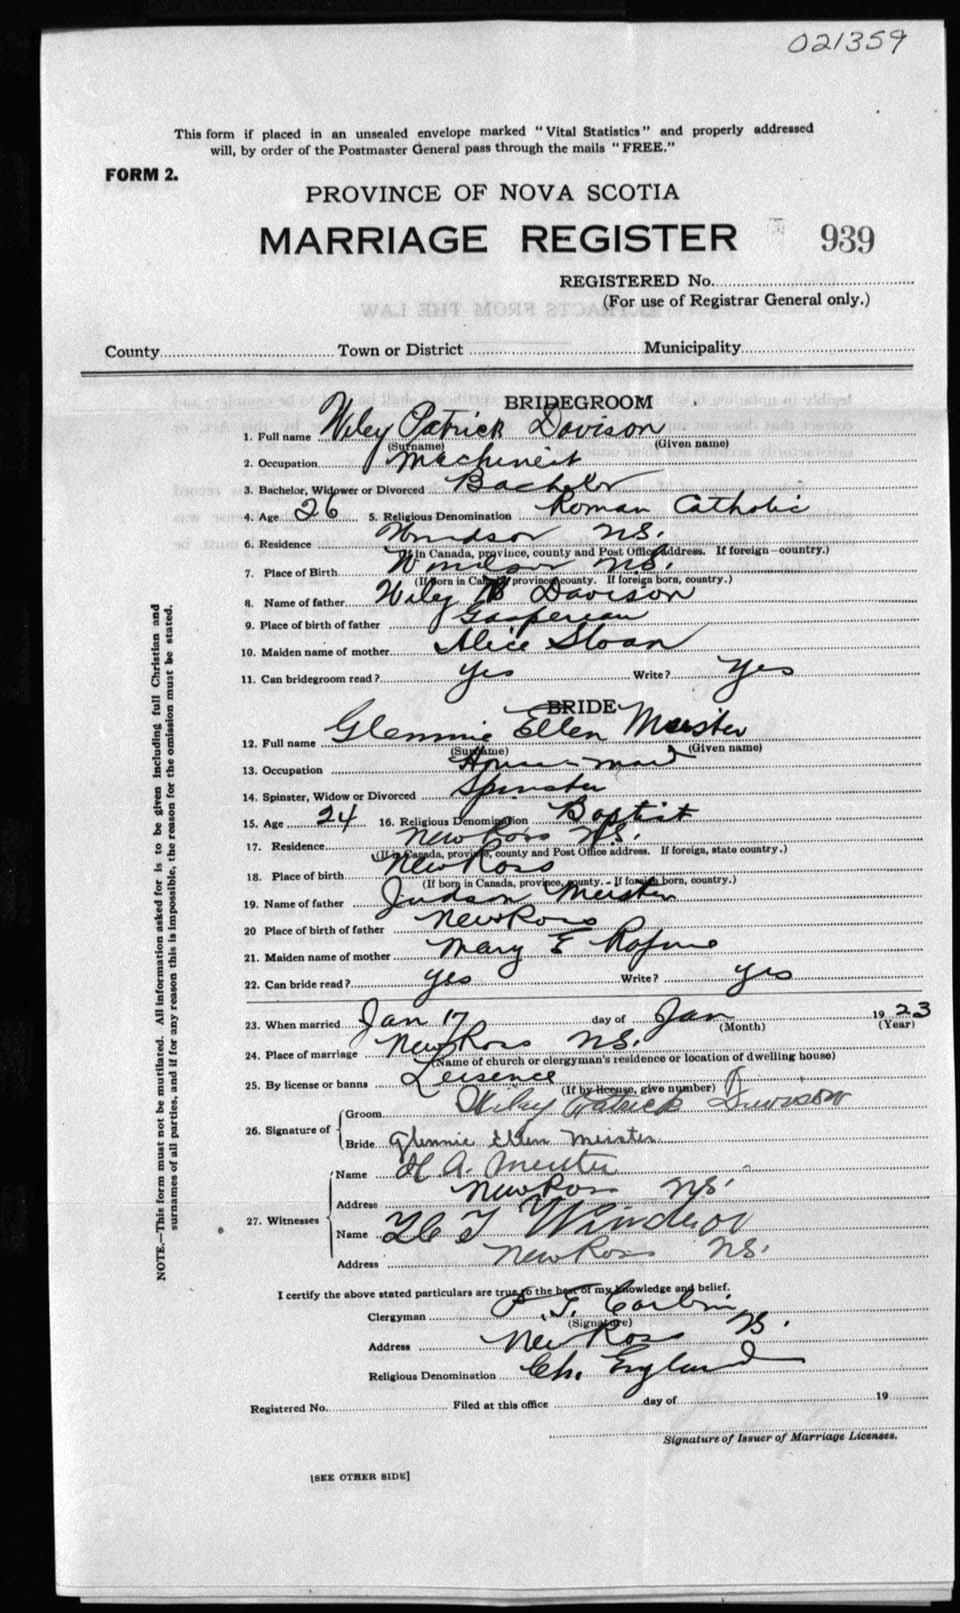 021359
This form if placed in an unsealed envelope marked "Vital Statistics" and properly addressed
will, by order of the Postmaster General pass through the mails "FREE."
FORM 2.
PROVINCE OF NOVA SCOTIA
MARRIAGE REGISTER 939
REGISTERED No.
(For use of Registrar General only.)
County Town or District Municipality
BRIDEGROOM
1. Full name Wiley Patrick Davison
(Surname) (Given name)
2. Occupation Machineist
3. Bachelor, Widower or Divorced Bachelor
4. Age 26 5. Religious Denomination Roman Catholic
6. Residence Windsor N.S.
(If in Canada, province, county and Post Office address. If foreign—country.)
7. Place of Birth Windsor N.S.
(If born in Canada, province, county. If foreign born, country.)
8. Name of father Wiley B Davison
9. Place of birth of father Gasperau
10. Maiden name of mother Alice Sloan
11. Can bridegroom read? Yes Write? Yes
BRIDE
12. Full name Glennie Ellen Meister
(Surname) (Given name)
13. Occupation House maid
14. Spinster, Widow or Divorced Spinster
15. Age 24 16. Religious Denomination Baptist
17. Residence New Ross N.S.
(If in Canada, province, county and Post Office address. If foreign, state country.)
18. Place of birth New Ross
(If born in Canada, province, county.-If foreign born, country.)
19. Name of father Judson Meister
20 Place of birth of father New Ross
21. Maiden name of mother Mary E
22. Can bride read? yes Write? yes
23. When married Jan 17 day of Jan 1923
(Month) (Year)
24. Place of marriage New Ross N.S.
(Name of church or clergyman's residence or location of dwelling house)
25. By license or banns Leisence
(If by license, give number)
26. Signature of Groom Wiley Patrick Davison
Bride Glennie Ellen Meister
27. Witnesses Name H A. Meister
Address New Ross N.S.
Name T
Address New Ross N.S.
I certify the above stated particulars are true to the best of my knowledge and belief.
Clergyman
(Signature)
Address New Ross N.S.
Religious Denomination Ch. England
Registered No. Filed at this office day of 19
Signature of Issuer of Marriage Licenses.
[SEE OTHER SIDE]
NOTE.—This form must not be mutilated. All information asked for is to be given including full Christian and
surnames of all parties, and if for any reason this is impossible, the reason for the omission must be stated.